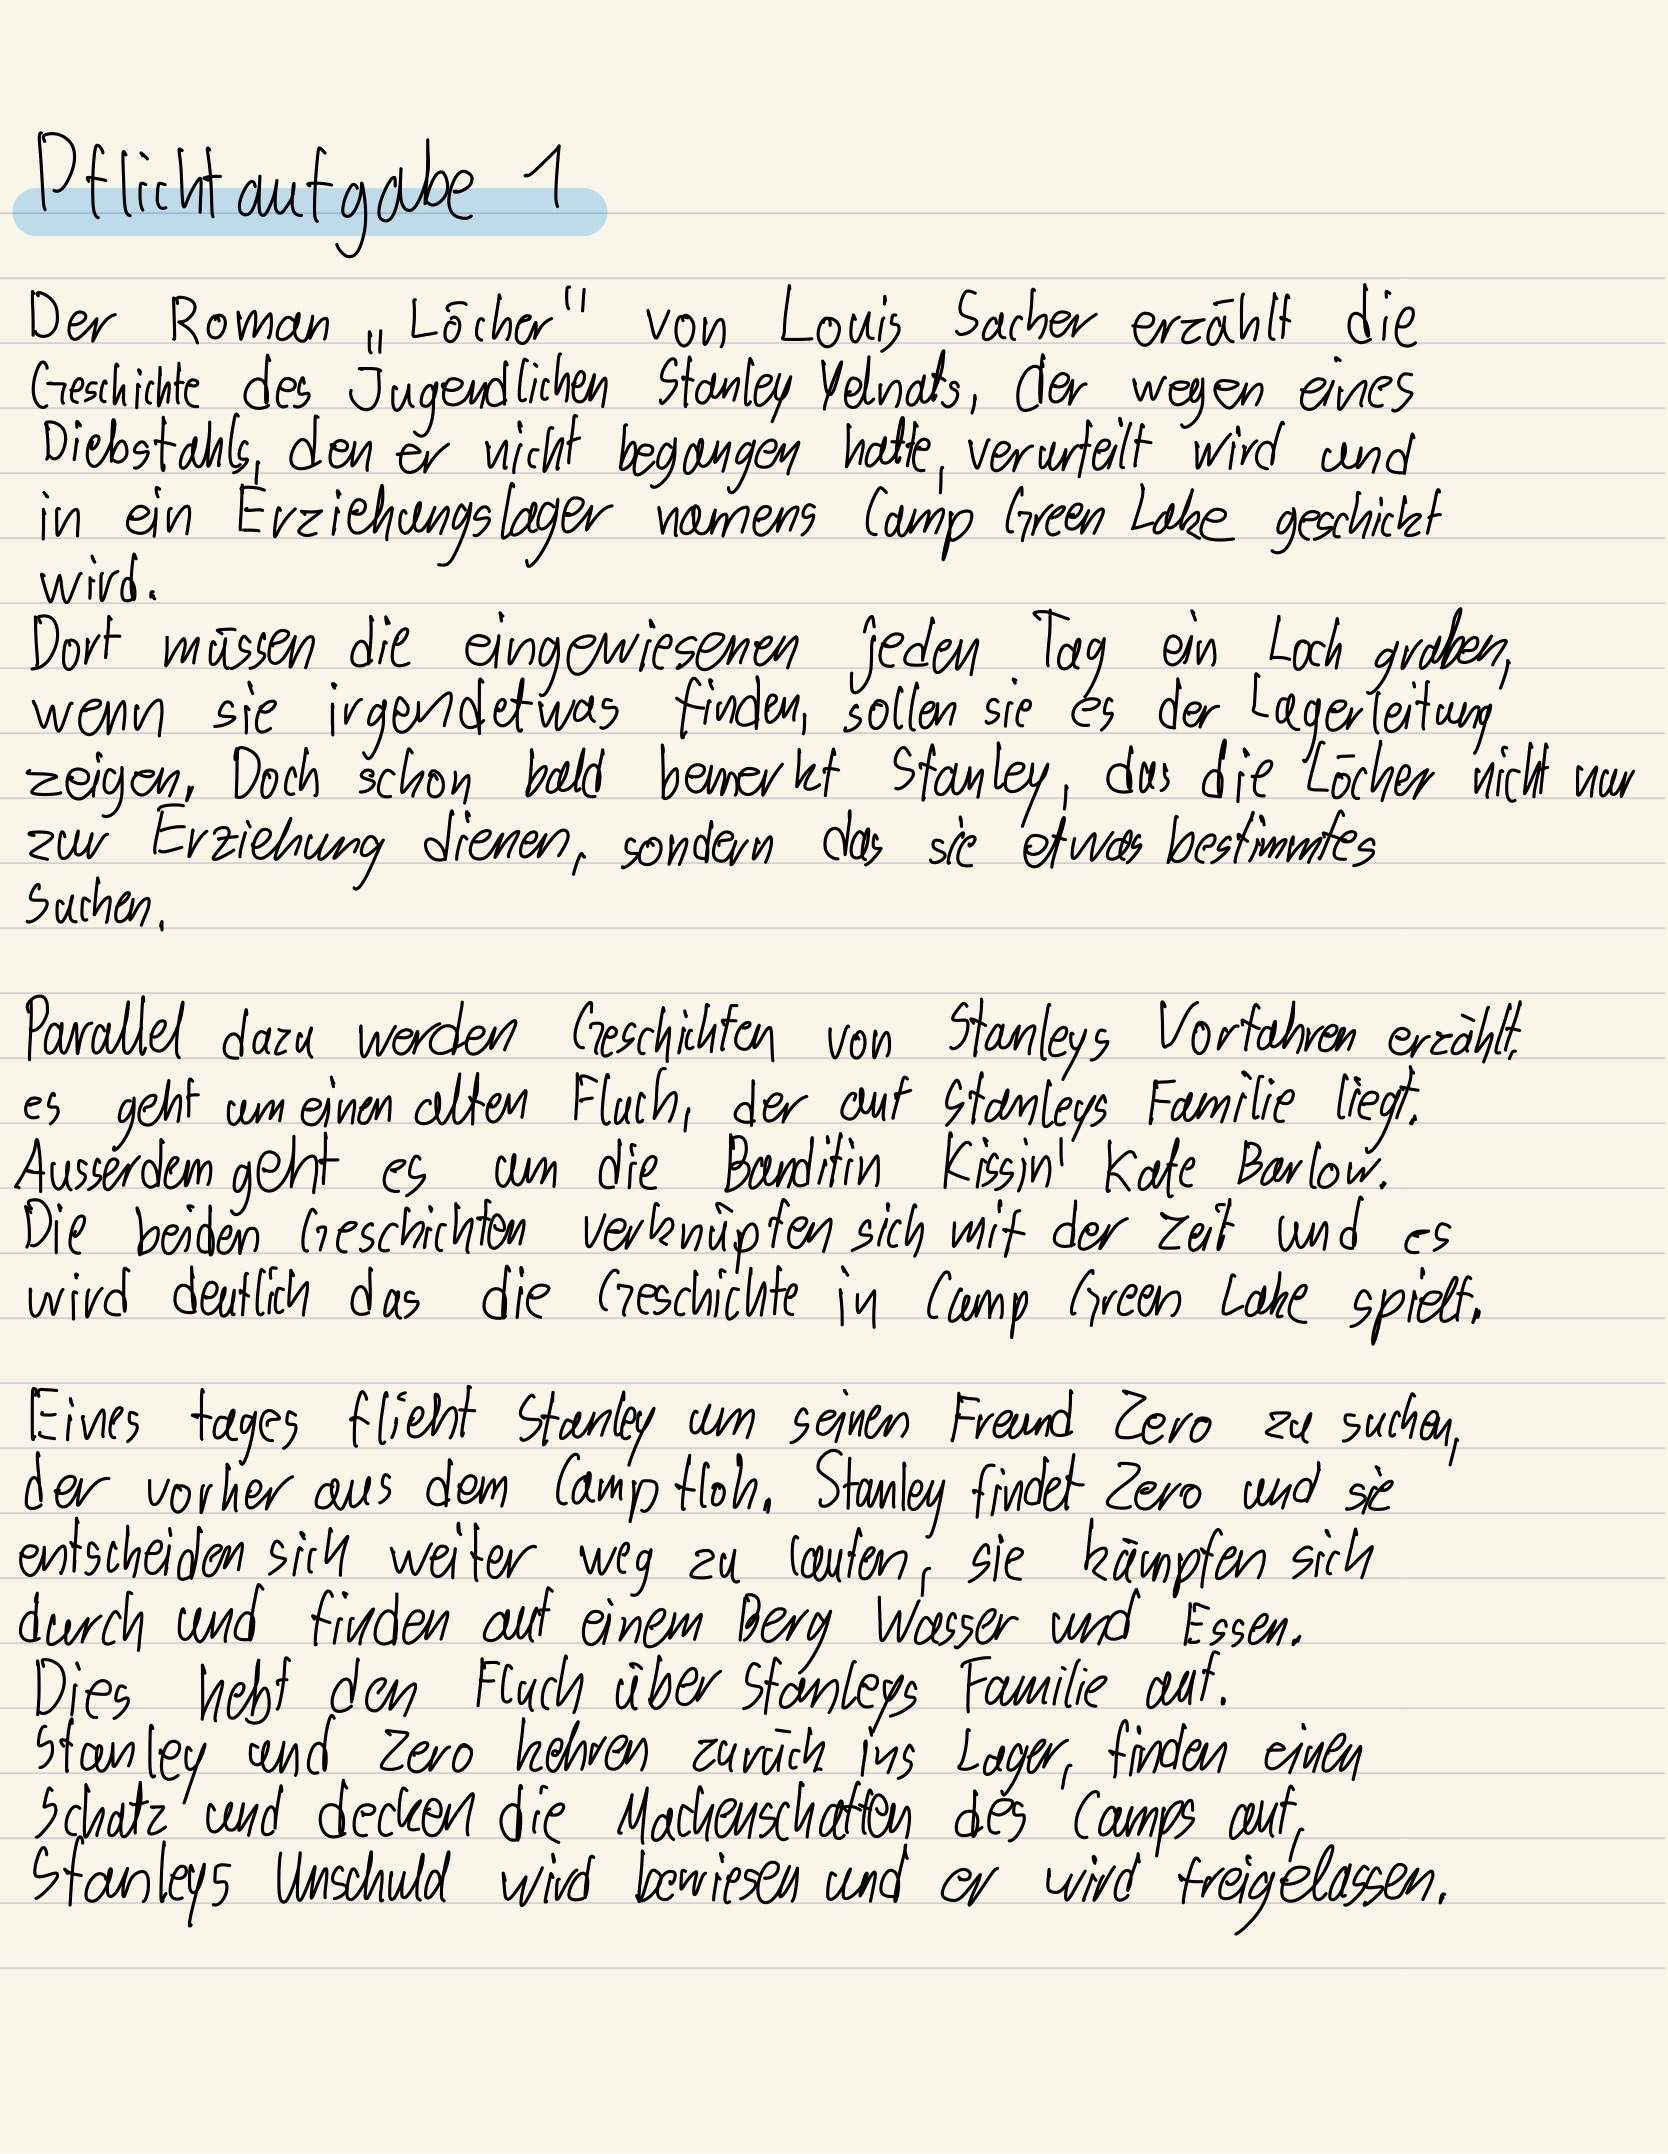 Pflichtaufgabe 1
Der Roman „Löcher" von Louis Sacher erzählt die
Geschichte des Jugendlichen Stanley Yelnats, der wegen eines
Diebstahls, den er nicht begangen hatte, verurteilt wird und
in ein Erziehungslager namens Camp Green Lake geschickt
wird.
Dort müssen die eingewiesenen jeden Tag ein Loch graben,
wenn sie irgendetwas finden, sollen sie es der Lagerleitung
zeigen. Doch schon bald bemerkt Stanley, das die Löcher nicht nur
zur Erziehung dienen, sondern das sie etwas bestimmtes
suchen.
Parallel dazu werden Geschichten von Stanleys Vorfahren erzählt.
es geht um einen alten Fluch, der auf Stanleys Familie liegt.
Ausserdem geht es um die Banditin Kissin' Kate Barlow.
Die beiden Geschichten verknüpfen sich mit der Zeit und es
wird deutlich das die Geschichte in Camp Green Lake spielt.
Eines tages flieht Stanley um seinen Freund Zero zu suchen,
der vorher aus dem Camp floh. Stanley findet Zero und sie
entscheiden sich weiter weg zu laufen, sie kämpfen sich
durch und finden auf einem Berg Wasser und Essen.
Dies hebt den Fluch über Stanleys Familie auf.
Stanley und Zero kehren zurück ins Lager, finden einen
Schatz und decken die Machenschaften des Camps auf,
Stanleys Unschuld wird bewiesen und er wird freigelassen.